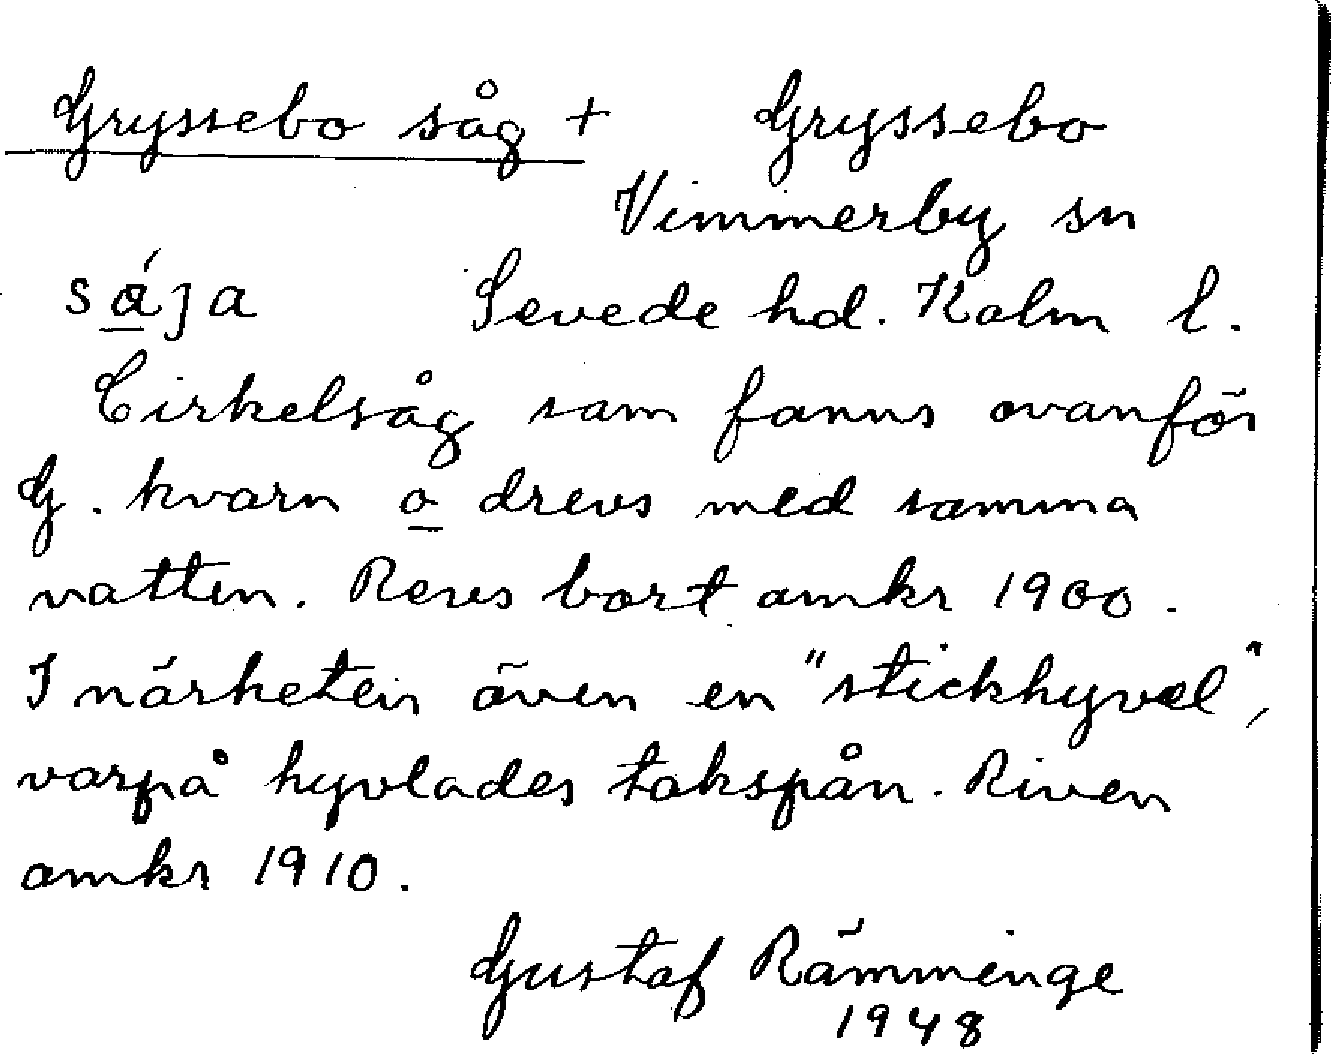 Gryssebo såg +	Gryssebo
Vimmerby sn
såja	Sevede hd. Kalm l.
Cirkelsåg som fanns ovanför
G. kvarn o drevs med samma
vatten. Revs bort omkr 1900.
I närheten även en "stickhyvel",
varpå hyvlades takspån. Riven
omkr 1910.
Gustaf Rämminge
1948